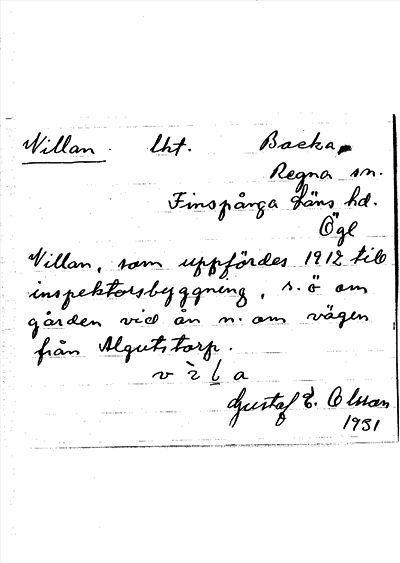 Willan. lht. Backa,
Regna sn.
Finspånga läns hd.
Ögl
Willan, som uppfördes 1912 till
inspektorsbyggning, s.ö om
gården vid ån n. om vägen
från Algutstorp.
v ì l a
Gustaf E. Olsson
1931